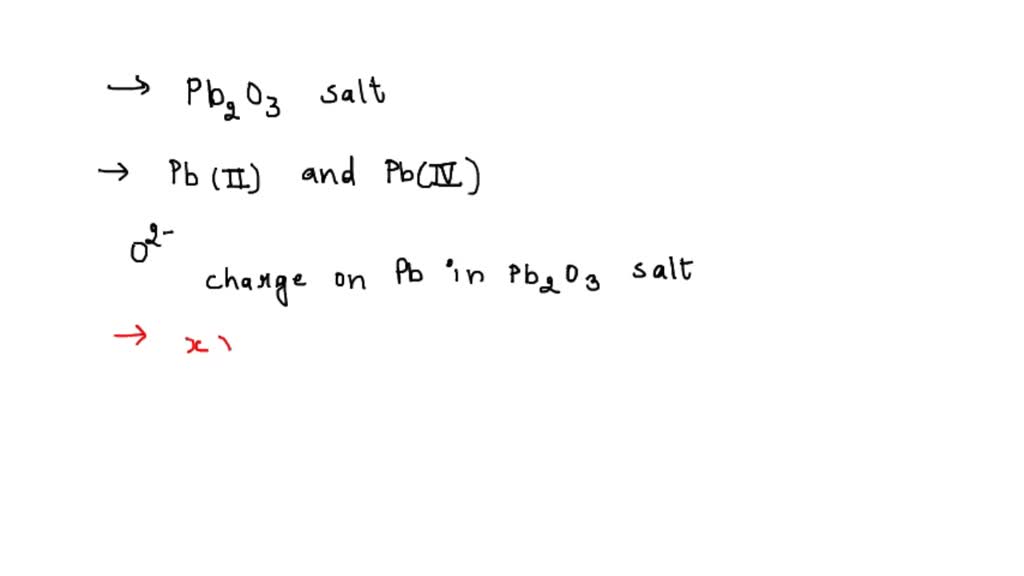 → Pb₂O₃ salt
→ Pb (II) and Pb(IV)
O²⁻
charge on Pb in Pb₂O₃ salt
→ x